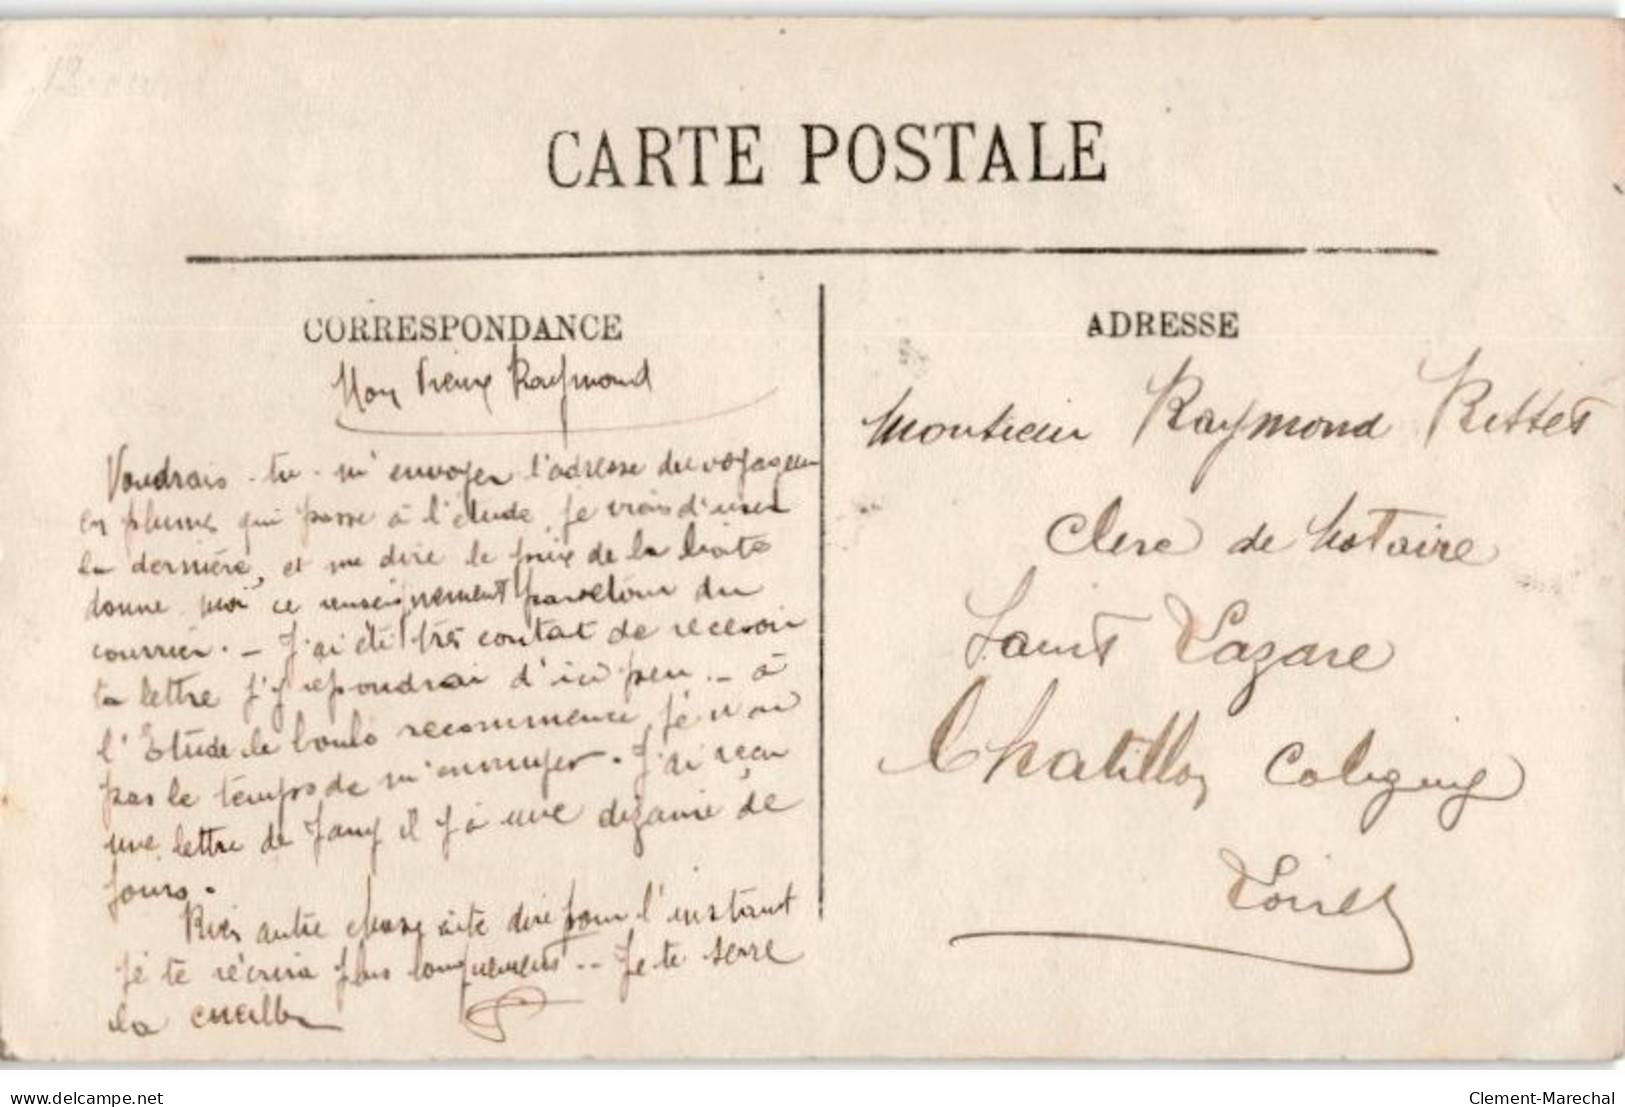 CARTE POSTALE
CORRESPONDANCE
Mon Vieux Raymond
Voudrais-tu m'envoyer l'adresse du voyageur
en plumes qui passe à l'étude, je viens d'user
la dernière, et me dire le prix de la boite
donne moi ce renseignement par retour du
courrier. - J'ai été très content de recevoir
ta lettre j'y repondrai d'ici peu. - à
l'Etude le boulo recommence, je n'ai
pas le temps de m'ennuyer. J'ai reçu
une lettre de il y a une dizaine de
jours.
Rien autre chose à te dire pour l'instant
je te récrirai plus longuement. - Je te serre
la
ADRESSE
Monsieur Raymond
Clerc de Notaire
Saint Lazare
Chatillon Coligny
Loiret
delcampe.net
Clement-Marechal